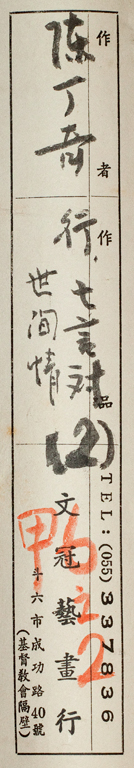 作者
陳丁奇
作品
行.七言對(2)
世间情
TEL:(055)337836
文冠藝畫行
斗六市成功路40號
(基督教會隔壁)
甲
之2